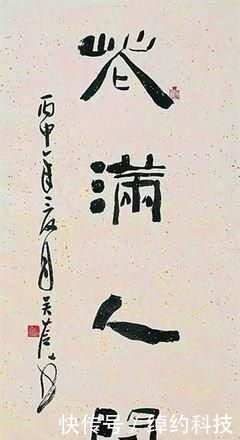 花滿人間
丙申年 月 吴
快传号/绰约科技